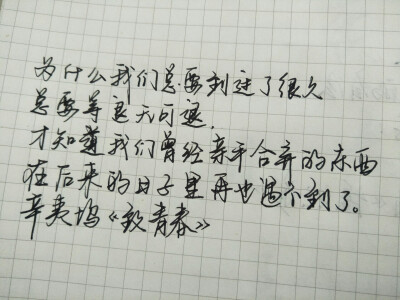 为什么我们总要到过了很久
总要等退无可退，
才知道我们曾经亲手合弃的东西
在后来的日子里再也遇不到了。
辛夷坞《致青春》